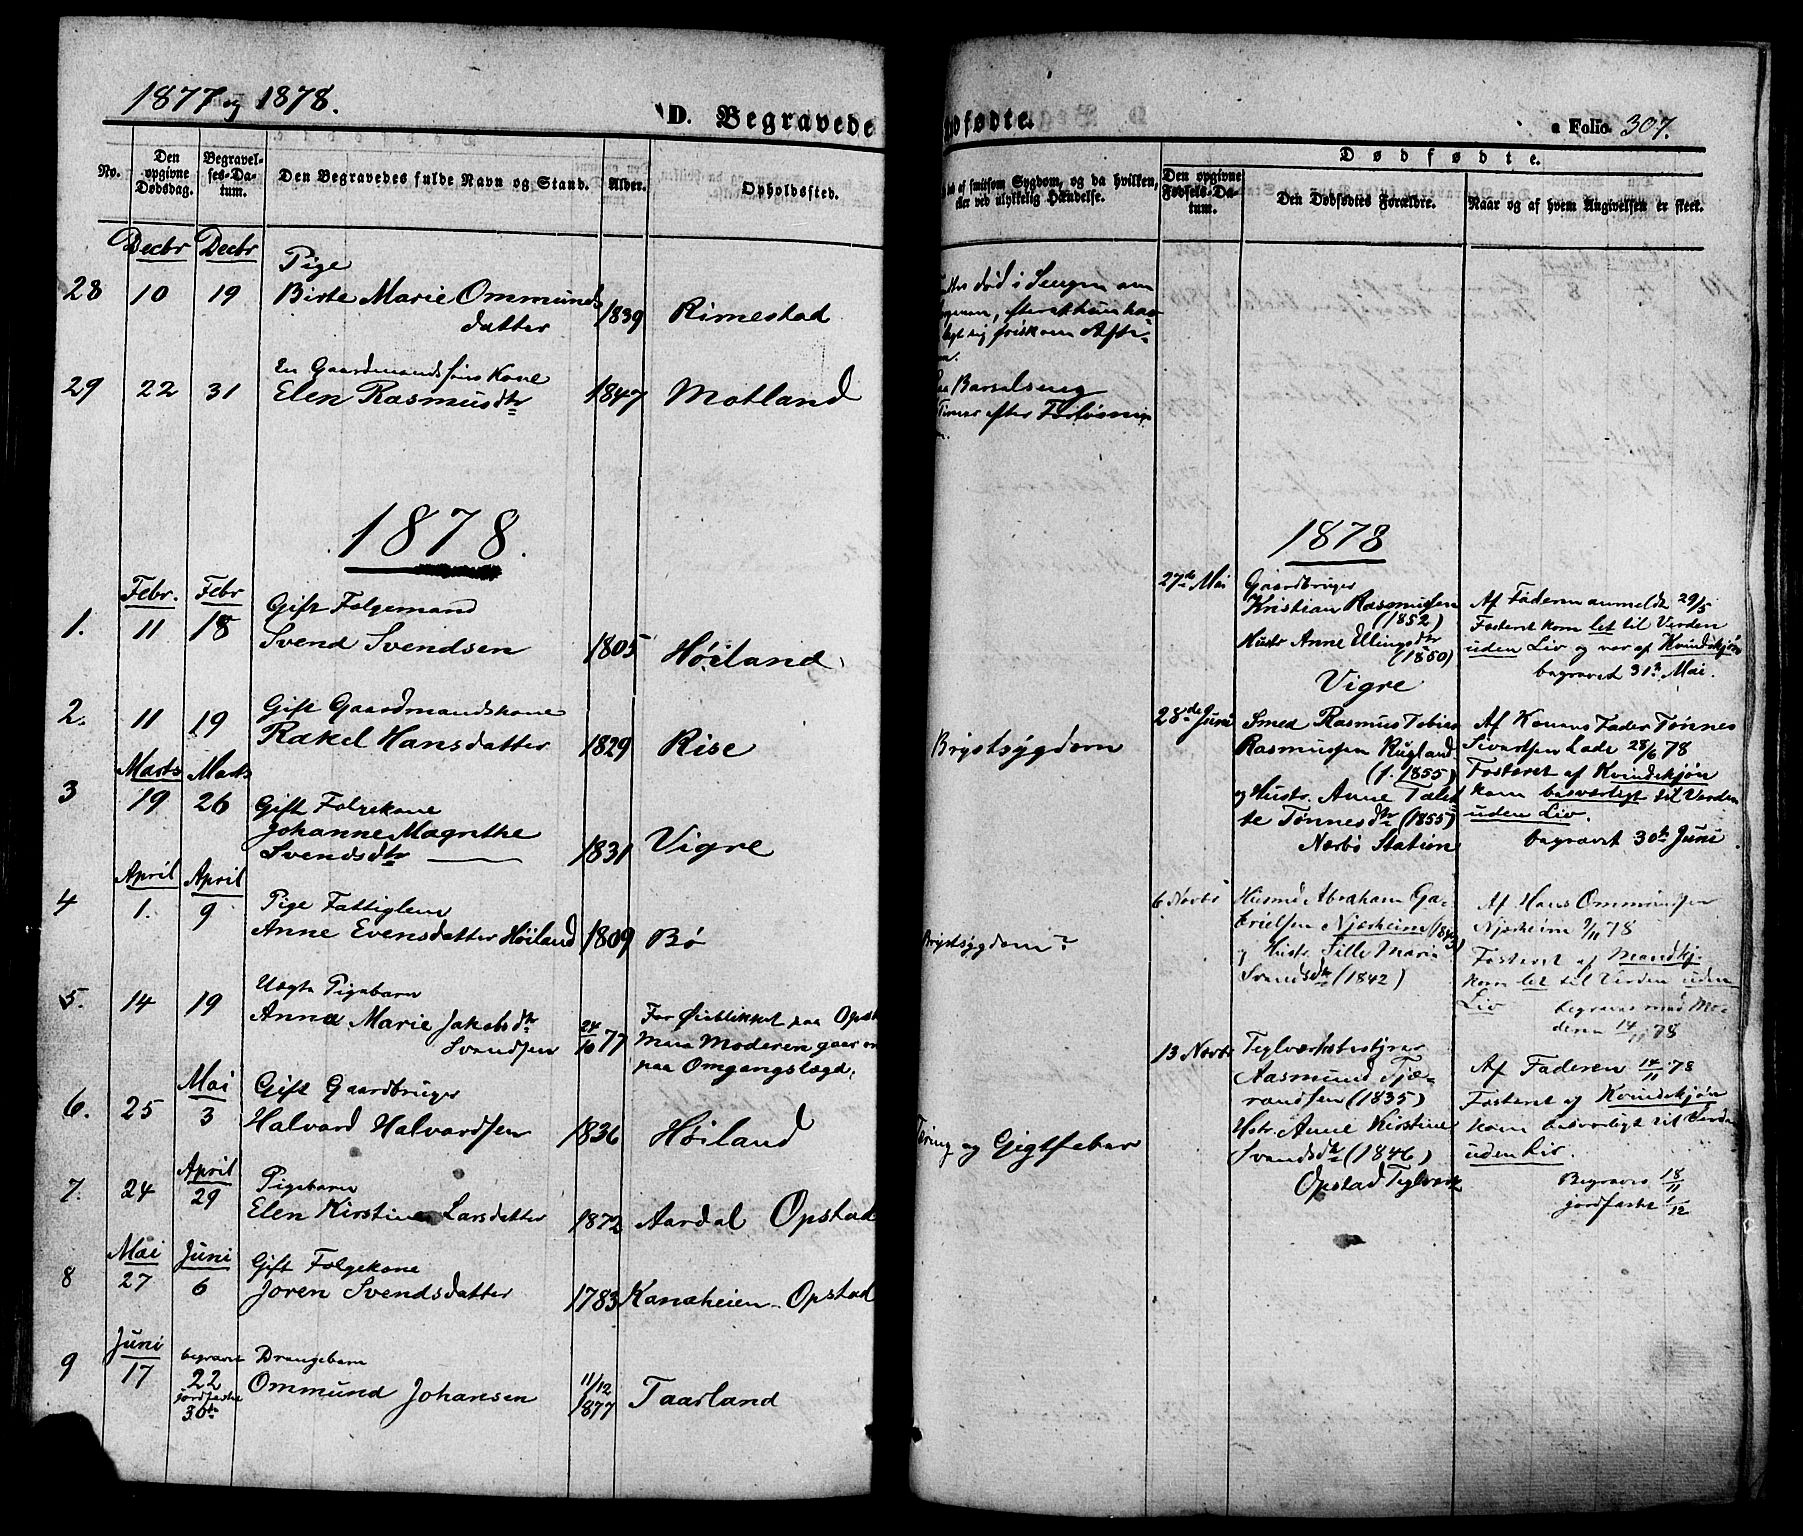 1877 og 1878.
D. Begravede
No.
Den opgivne Dødsdag.
Begravelses-Datum.
Den Begravedes fulde Navn og Stand.
Alder.
Opholdssted.
Decbr Decbr
Pige
28 10 19 Birte Marie Ommunds
datter 1839 Rimestad
En Gaardmands Kone
29 22 31 Elen Rasmusdtr 1847 Motland
1878.
Febr. Febr
Gift Følgemand
1. 11 18 Svend Svendsen 1805 Høiland
Gift Gaardmandskone
2. 11 19 Rakel Hansdatter 1829 Rise
Marts Marts
3 19 26 Gift Følgekone
Johanne Magrethe
Svendsdtr 1831 Vigre
April April
4 1. 9 Pige Fattiglem
Anne Evensdatter Høiland 1809 Bø
Uægte Pigebarn
5. 14 19 Anna Marie Jakobsdtr
Svendsen 24/10 77 For Øieblikket paa Opst
Moderen gaar
paa Omgangslægd.
Mai
Gift Gaardbruger
6. 25 3 Halvard Halvardsen 1836 Høiland
April
7. 24 29 Pigebarn
Elen Kirstine Larsdatter 1872 Aardal Opstad
Mai Juni
8 27 6 Gift Følgekone
Joren Svendsdatter 1783 Kanaheien Opstad
Juni
9 17 begravet 22 jordfæstet 30te
Drengebarn
Ommund Johansen 11/12 1877 Taarland
dfødte.
a Folio 307.
af smitsom Sygdom, og da hvilken,
eller ved ulykkelig Hændelse.
Dødfødte.
Den opgivne Fødsels-Datum.
Den Dødfødtes Forældre.
Naar og af hvem Angivelsen er skeet.
død i Sengen om
efterat hun hav
lagt sig frisk om Afte-
Barselseng
Timer efter Forløsning
Brystsygdom
Brystsygdom?
Tæring og Gigtfeber
1878
27de Mai Gaardbruger
Kristian Rasmussen
(1852)
Hustr Anne Ellingsdtr
(1850)
Vigre
Af Faderen anmeldt 29/5
Fosteret kom let til Verden
uden Liv og var af Kvindekjøn
begravet 31te Mai.
28de Juni Smed Rasmus Tobias
Rasmussen Rugland
(f. 1855)
og Hustr. Anne Talet
te Tønnesdtr (1855)
Nærbø Station
Af Konens Fader Tønnes
Sivertsen Lode 28/6 78
Fosteret af Kvindekjøn
kom besværligt til Verden
uden Liv.
begravet 30te Juni
6 Novbr Husmd Abraham Ga-
brielsen Njærheim (1843)
og Hustr. Sille Marie
Svendsdtr (1842)
Af Hans Ommundsen
Njærheim 9/11 78
Fosteret af Mandkj.
kom let til Verden uden
Liv begraves med Mo-
deren 14/11 78
13 Novbr Teglværksbestyrer
Aasmund Tjæ-
randsen (1835)
Hstr. Anne Kirstine
Svendsdtr (1846)
Opstad Teglverk
Af Faderen 14/11 78
Fosteret af Kvindekjøn
kom besværligt til Verden
uden Liv.
Begraves 18/11
jordfæstet 1/12